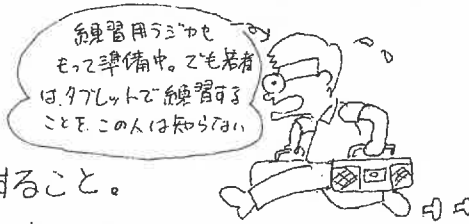 練習用ラジカセ
もって準備中。でも若者
は、タブレットで練習する
ことを、この人は知らない
すること。